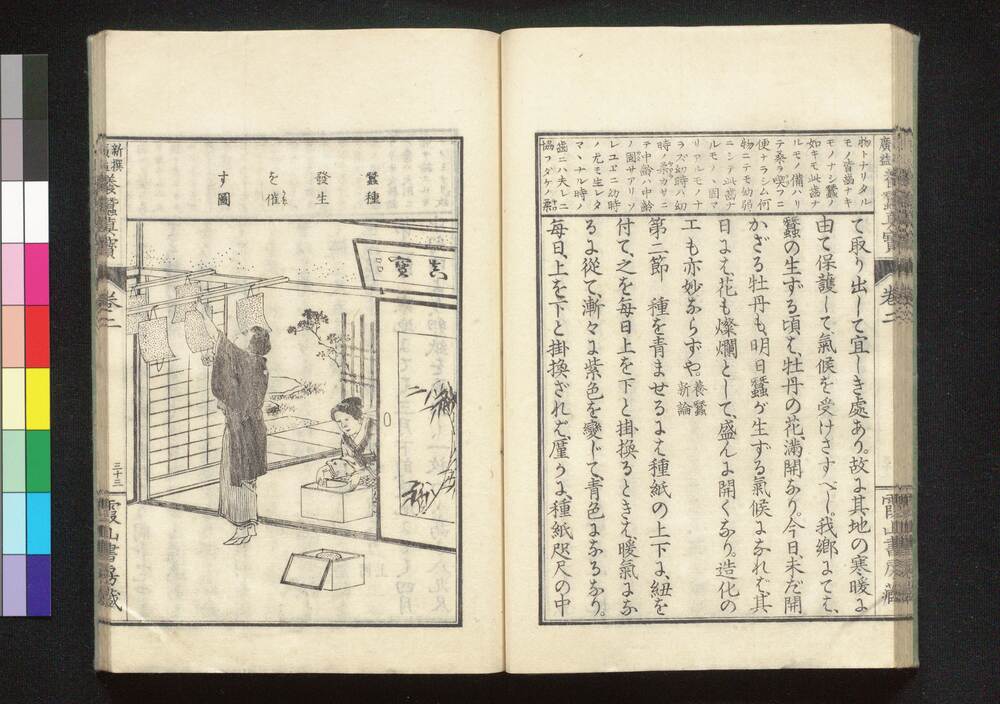 廣益養蠶眞寶
卷二
霞山書房藏
物トナリタル
モノ皆齒ナキ
モノナシ蠶ノ
如キモ此齒ナ
ルモノ備ハリ
テ桑ヲ喫フニ
便ナラシム何
物ニテモ幼弱
ニシテ此齒ナ
ルモノハ固ヨ
リアルモノナ
ラズ幼時ハ幼
時ノ柔カサニ
テ中齡ハ中齡
ノ固サアリソ
レユエニ幼時
ノ尤モ生レタ
マヽナル時ノ
齒ニハ夫レニ
協フダケノ柔
て取り出して宜しき處あり。故に其地の寒暖に
由て保護して氣候を受けさすべし我鄕にては、
蠶の生ずる頃は、牡丹の花、滿開なり。今日、未だ開
かざる牡丹も、明日蠶が生ずる氣候になれば、其
日には、花も燦爛として、盛んに開くなり。造化の
工も亦妙ならずや。養蠶新論
第二節 種を青ませるには種紙の上下に、紐を
付て、之を每日上を下と掛換るときは、暖氣にな
るに從て、漸々に紫色を變じて、青色になるなり。
每日、上を下と掛換ざれば、廑かに、種紙咫尺の中
蠶種
發生
を催
す圖
眞寶
新撰
廣益養蠶眞寶
卷二
三十三
霞山書房藏